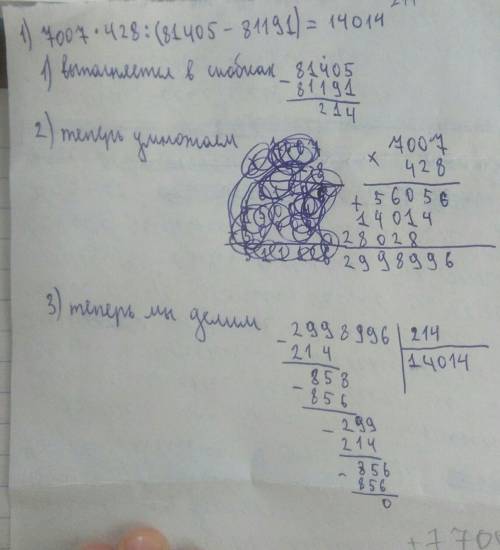 1) 7007 · 428 : (81405 - 81191) = 14014
1) выполняется в скобках
- 81405
81191
214
2) теперь умножаем
× 7007
428
+ 56056
14014
28028
2998996
3) теперь мы делим
- 2998996 | 214
214 | 14014
- 858
856
- 299
214
- 856
856
0